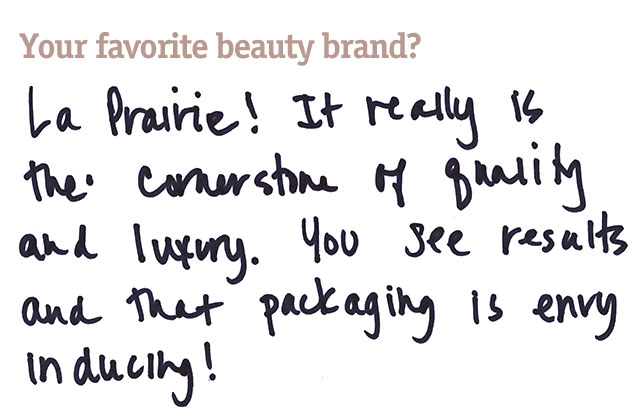 Your favorite beauty brand?
La Prairie! It really is
the cornerstone of quality
and luxury. You see results
and that packaging is envy
inducing!